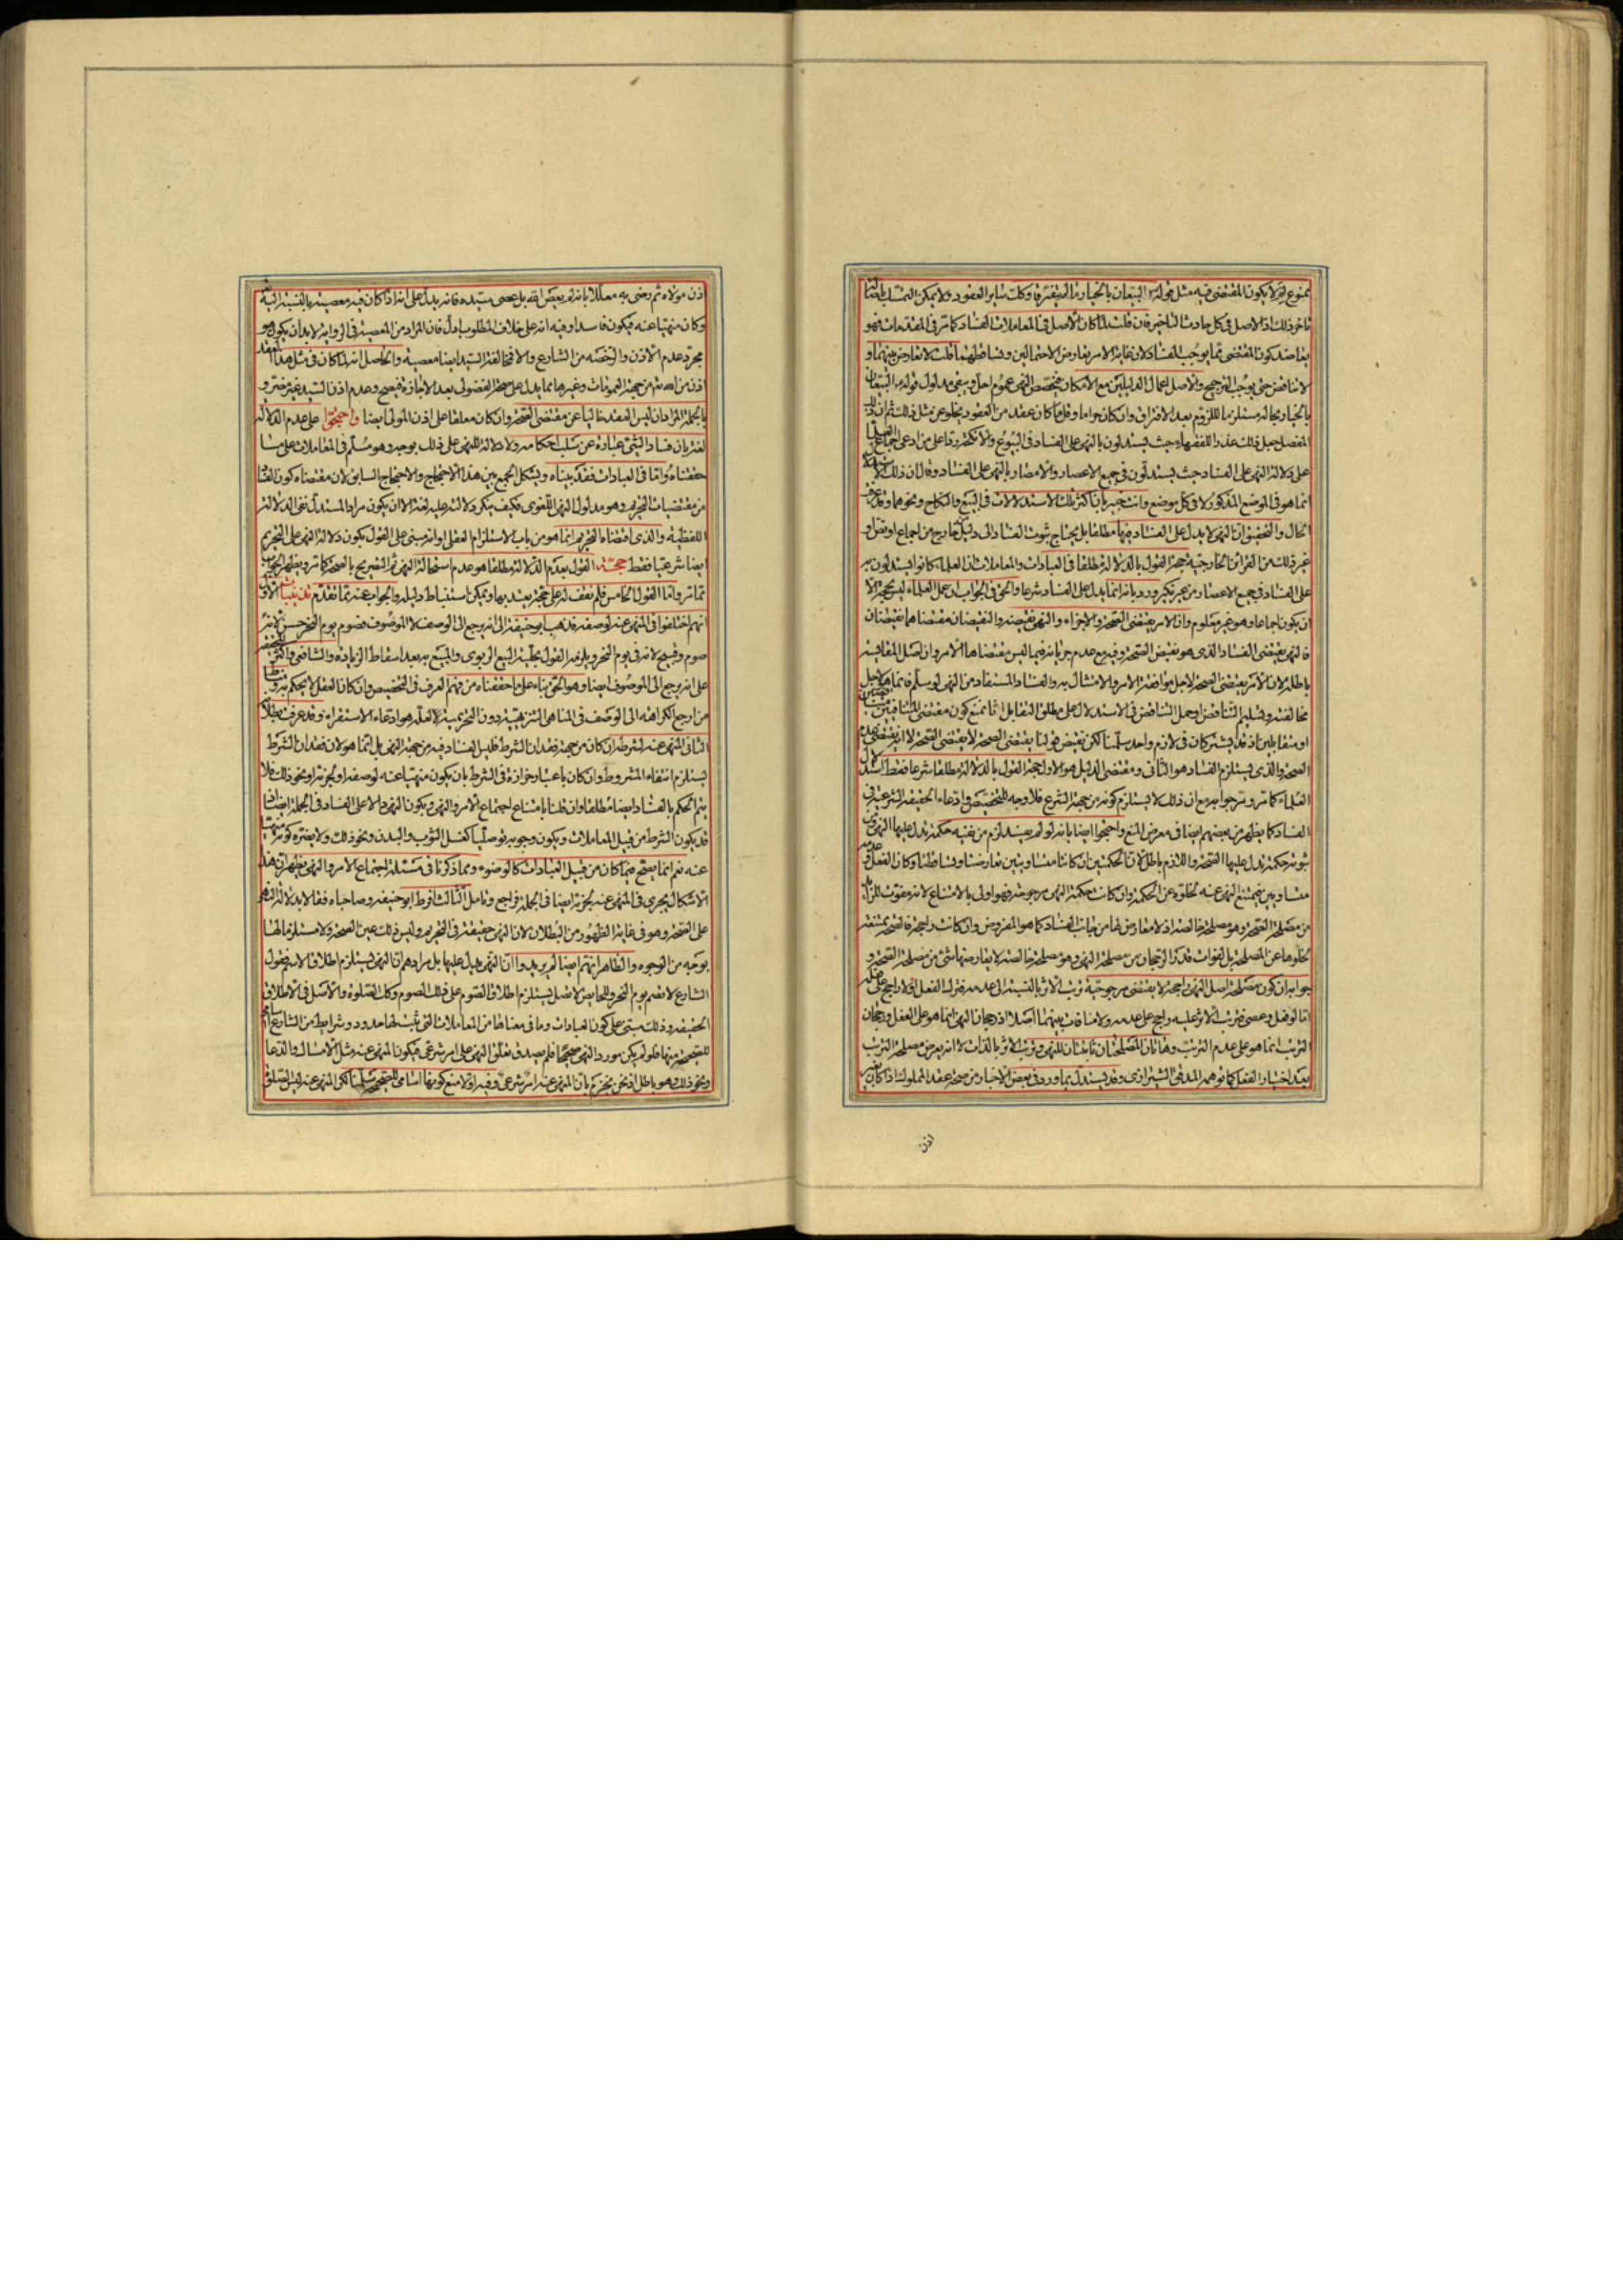 ممنوع لم لا يكون المقتضى فيه مثل قوله البيعان بالخيار ما لم يفترقا وكك ساير العقود ولا يمكن التمسك باصالة
تاخر ذلك اذ الاصل فى كل حادث التاخير فان قلت لما كان الاصل فى المعاملات الفساد كما مر فى المقدمات فهو
يعاضد كون المقتضى مما يوجب الفساد لان غاية الامر تعارض الاحتمالين وتساقطهما قلت لا تعارض بينهما و
لا تناقض حتى يوجب الترجيح والاصل اعمال الدليلين مع الامكان فيختصص النهى عموم احل ويبقى مدلول قوله البيعان
بالخيار بحاله مستلزما للزوم بعد الافتراق وان كان حراما وقلما كان عقد من العقود يخلو عن مثل ذلك ثم ان
المفصل جعل ذلك عذرا للفقهاء حيث يستدلون بالنهى على الفساد فى البيوع والانكحة وقاعلى من ادعى اجماع
على دلالة النهى على الفساد حيث يستدلون فى جميع الاعصار والامصار بالنهى على الفساد وقال ان ذلك
انما هو فى الموضع المذكور لا فى كل موضع وانت خبير بان اكثر تلك الاستدلالات فى البيع والنكاح ونحوهما وقد عرفت
الحال والتحقيق ان النهى لا يدل على الفساد فيها مطلقا بل يحتاج ثبوت الفساد الى دليل خارج من اجماع او نص او
غير ذلك من القرائن الخارجية حجة القول بالدلالة مطلقا فى العبادات والمعاملات ان العلماء كانوا يستدلون به
على الفساد فى جميع الاعصار من غير نكير ورد بانه انما يدل على الفساد شرعا والحق فى الجواب ان عمل العلماء ليس بحجة الا
ان يكون اجماعا وهو غير معلوم وان الامر يقتضى الصحة والاجزاء والنهى نقيضه والنقيضان مقتضاهما نقيضان
فالنهى يقتضى الفساد الذى هو نقيض الصحة وفيه مع عدم جريانه فيما ليس مقتضاها الامر وان اصل المقايسة
باطلة لان الامر يقتضى الصحة لاجل موافقة الامر والامتثال به والفساد المستفاد من النهى لو سلم فانما هو لاجل
مخالفته وتسليم التناقض وحمل التناقض فى الاستدلال على مطلق التقابل انا نمنع كون مقتضى
او متقابلين اذ قد يشتركان فى لازم واحد سلمنا لكن نقيض قولنا يقتضى الصحة لا يقتضى الصحة لا انه يقتضى عدم
الصحة والذى يستلزم الفساد هو الثانى ومقتضى الدليل هو الاول حجة القول بالدلالة مطلقا شرعا فقط استدلال
العلماء كما مر ومر جوابه مع ان ذلك لا يستلزم كونه من جهة الشرع فلا وجه للتخصيص وادعاء الحقيقة الشرعية فى
الفساد كما يظهر من بعضهم ايضا فى معرض المنع واحتجوا ايضا بانه لو لم يفسد لزم من نفيه حكمة يدل عليها النهى ومن
ثبوته حكمة يدل عليها الصحة واللازم باطل لان الحكمتين ان كانتا متساويتين تعارضتا وتساقطتا وكان الفعل و
متساويين فيمتنع النهى عنه لخلوه عن الحكمة وان كانت حكمة النهى مرجوحة فهو اولى بالامتناع لانه مفوت للزايد
من مصلحة الصحة وهو مصلحة خالصة اذ لا معارض لها من جانب الفساد كما هو المفروض وان كانت راجحة فالصحة ممتنعة
لخلوها عن المصلحة بل لفوات قدر الرجحان من مصلحة النهى وهو مصلحة خالصة لا يعارضها شئ من مصلحة الصحة و
جوابه ان كون مصلحة اصل النهى راجحة لا يقتضى مرجوحية ترتب الاثر بالنسبة الى عدمه فترك الفعل اولا راجح على فعله
اما لو فعل وعصى فترتب الاثر عليه راجح على عدمه ولا منافاة بينهما اصلا اذ رجحان النهى انما هو على الفعل ورجحان
الترتب انما هو على عدم الترتب وهاتان المصلحتان ثابتتان للنهى وترتب الاثر بالذات لا انه يعرض مصلحة الترتب
بعد اختيار الفعل كما توهمه المدقق الشيرازى وقد يستدل بما ورد فى بعض الاخبار من صحة عقد المملوك اذا كان بغير
اذن
اذن مولاه ثم رضى به معللا بانه لم يعص الله بل عصى سيده فانه يدل على انه اذا كان فيه معصية بالنسبة اليه
وكان منهيا عنه فيكون فاسدا وفيه انه على خلاف المطلوب ادل فان المراد من المعصية فى الرواية لا بد ان يكون هو
مجرد عدم الاذن والرخصة من الشارع والا فمخالفة السيد ايضا معصية والحاصل انه لما كان فى مثل هذا العقد
اذن من الله تعم من جهة العمومات وغيرها مما يدل على صحة الفضولى بعد الاجازة فيصح وعدم اذن السيد غير مضر و
بالجملة المراد ان ليس العقد خاليا عن مقتضى الصحة وان كان معلقا على اذن المولى ايضا واحتجوا على عدم الدلالة
لغة بان فساد الشئ عبارة عن سلب احكامه ولا دلالة للنهى على ذلك بوجه وهو مسلم فى المعاملات على ما
حققناه واما فى العبادات فقد بيناه ويشكل الجمع بين هذا الاحتجاج والاحتجاج السابق لان مقتضاه كون الفساد
من مقتضيات التحريم وهو مدلول النهى اللغوى فكيف ينكر دلالته عليه لغة الا ان يكون مراد المستدل نفى الدلالة
اللفظية والذى اقتضاه التحريم انما هو من باب الاستلزام العقلى او انه مبنى على القول بكون دلالة النهى على التحريم
ايضا شرعيا فقط حجة القول بعدم الدلالة مطلقا هو عدم استحالة النهى ثم التصريح بالصحة كما مر ويظهر الجواب
مما مر واما القول الخامس فلم نقف له على حجة يعتد بها ويمكن استنباط دليله والجواب عنه مما تقدم تذنيبات الاول
انهم اختلفوا فى المنهى عنه لوصفه فذهب ابو حنيفة الى انه يرجع الى الوصف لا الموصوف فصوم يوم النحر حسن لانه
صوم وقبيح لانه فى يوم النحر ويلزمه القول بحلية البيع الربوى والمبيع به بعد اسقاط الزيادة والشافعى واكثر
على انه يرجع الى الموصوف ايضا وهو الحق بناء على ما حققناه من فهم العرف فى التخصيص وان كان العقل لا يحكم به و
من ارجع الكراهة الى الوصف فى المناهى التنزيهية دون التحريمية لعله هو ادعاء الاستقراء وقد عرفت بطلانه
الثانى المنهى عنه لشرطه ان كان من جهة فقدان الشرط فليس الفساد فيه من جهة النهى بل انما هو لان فقدان الشرط
يستلزم انتفاء المشروط وان كان باعتبار حزازة فى الشرط بان يكون منهيا عنه لوصفه او لجزئه او نحو ذلك فلا
يتم الحكم بالفساد ايضا مطلقا وان قلنا بامتناع اجتماع الامر والنهى ويكون النهى دالا على الفساد فى الجملة ايضا اذ
قد يكون الشرط من قبيل المعاملات ويكون وجوبه توصليا كغسل الثوب والبدن ونحو ذلك ولا يضره كونه منهيا
عنه نعم انما يصح فيما كان من قبيل العبادات كالوضوء ومما ذكرنا فى مسئلة اجتماع الامر والنهى يظهر ان هذا
الاشكال يجرى فى المنهى عنه لجزئه ايضا فى الجملة فراجع وتامل الثالث افرط ابو حنيفة وصاحباه فقالا بدلالة النهى
على الصحة وهو فى غاية الظهور من البطلان لان النهى حقيقة فى التحريم وليس ذلك عين الصحة ولا مستلزما لها
بوجه من الوجوه والظاهر انهم ايضا لم يريدوا ان النهى يدل عليها بل مرادهم ان النهى يستلزم اطلاق الاسم فقول
الشارع لا تصم يوم النحر وللحايض لا تصل يستلزم اطلاق الصوم على ذلك الصوم وكك الصلوة والاصل فى الاطلاق
الحقيقة وذلك مبتن على كون العبادات وما فى معناها من المعاملات التى ثبت لها حدود وشرايط من الشارع اسامى
للصحيحة منها فلو لم يكن مورد النهى صحيحا لم يصدق تعلق النهى على امر شرعى فيكون المنهى عنه مثل الامساك والدعاء
ونحو ذلك وهو باطل اذ نحن نجزم بان المنهى عنه امر شرعى وفيه اولا منع كونها اسامى للصحيحة سلمنا لكن المنهى عنه ليس الصلوة